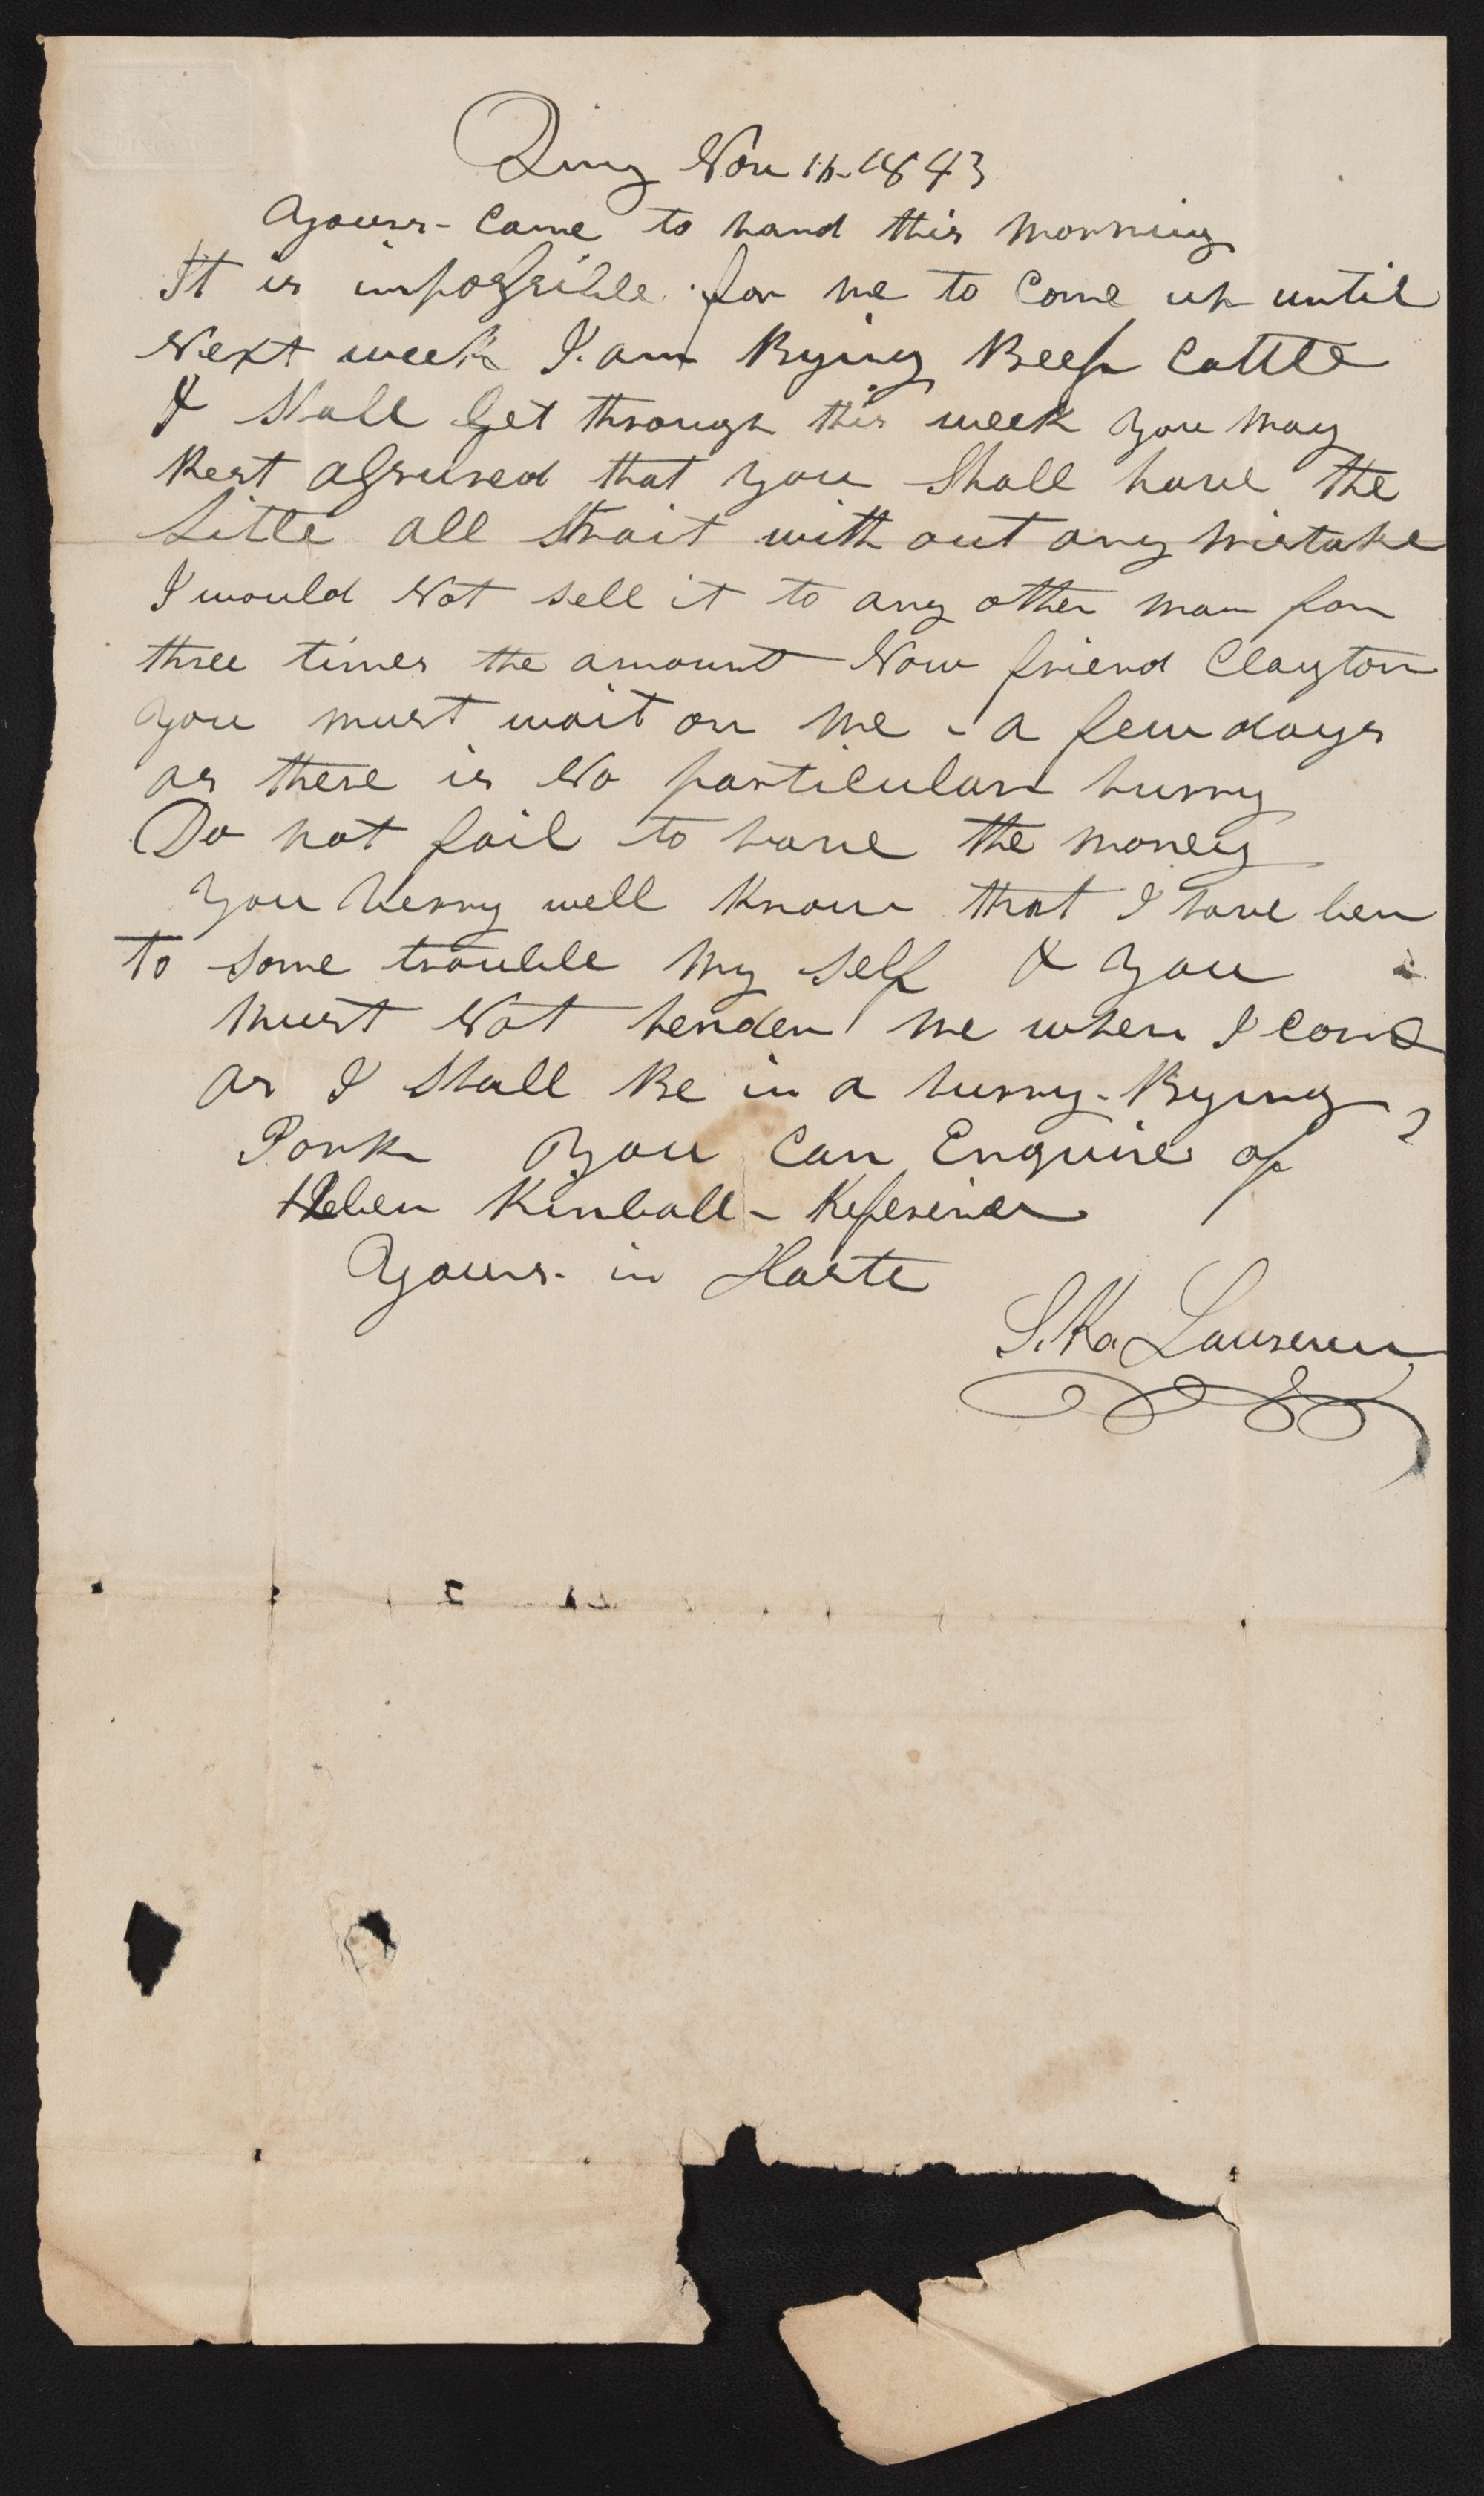 Quincy Nov 16. 1843
Yours - Came to hand this morning
It is impossible for me to Come up until
Next week I. am Bying Beef Cattle
I Shall Get through this week you may
Rest assured that you Shall have the
title all Strait with out any mistake
I would Not sell it to any other man for
three times the amount Now friend Clayton
you must wait on me - a few days
as there is No particular hurry
Do not fail to have the money
you verry well Know that I have ben
to some trouble my self & you
must Not hender me when I Come
as I Shall Be in a hurry - Bying
Pork you Can Enquire of
Heben Kimball -
Yours in Haste
S.